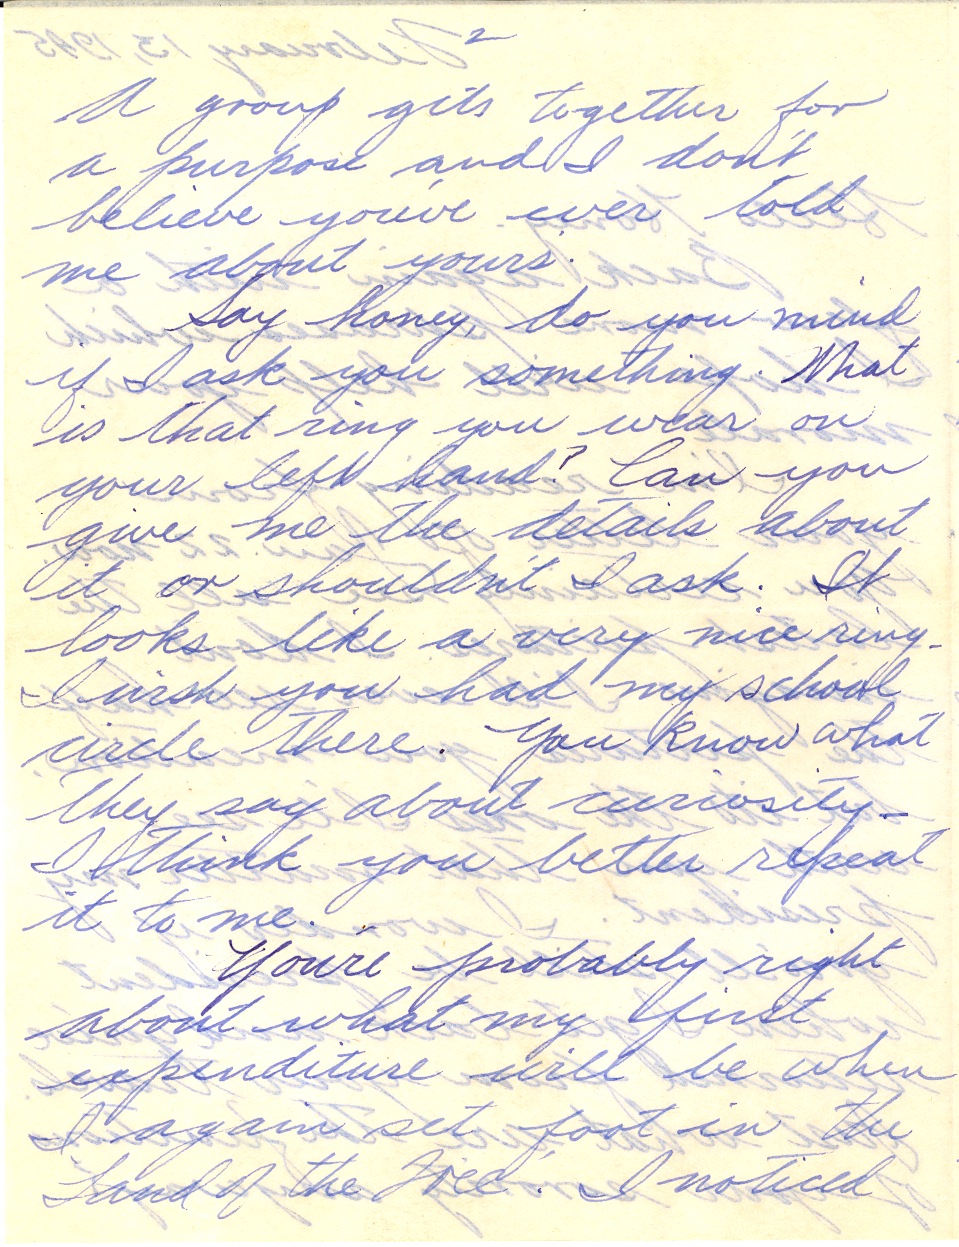 2
A group gets together for
a purpose and I don't
believe you've ever told
me about yours.
Say honey, do you mind
if I ask you something. What
is that ring you wear on
your left hand? Can you
give me the details about
it or shouldn't I ask. It
looks like a very nice ring.
I wish you had my school
circle there. You know what
they say about curiosity -
I think you better repeat
it to me.
You're probably right
about what my first
expenditure will be when
I again set foot in the
'Land of the Free'. I noticed